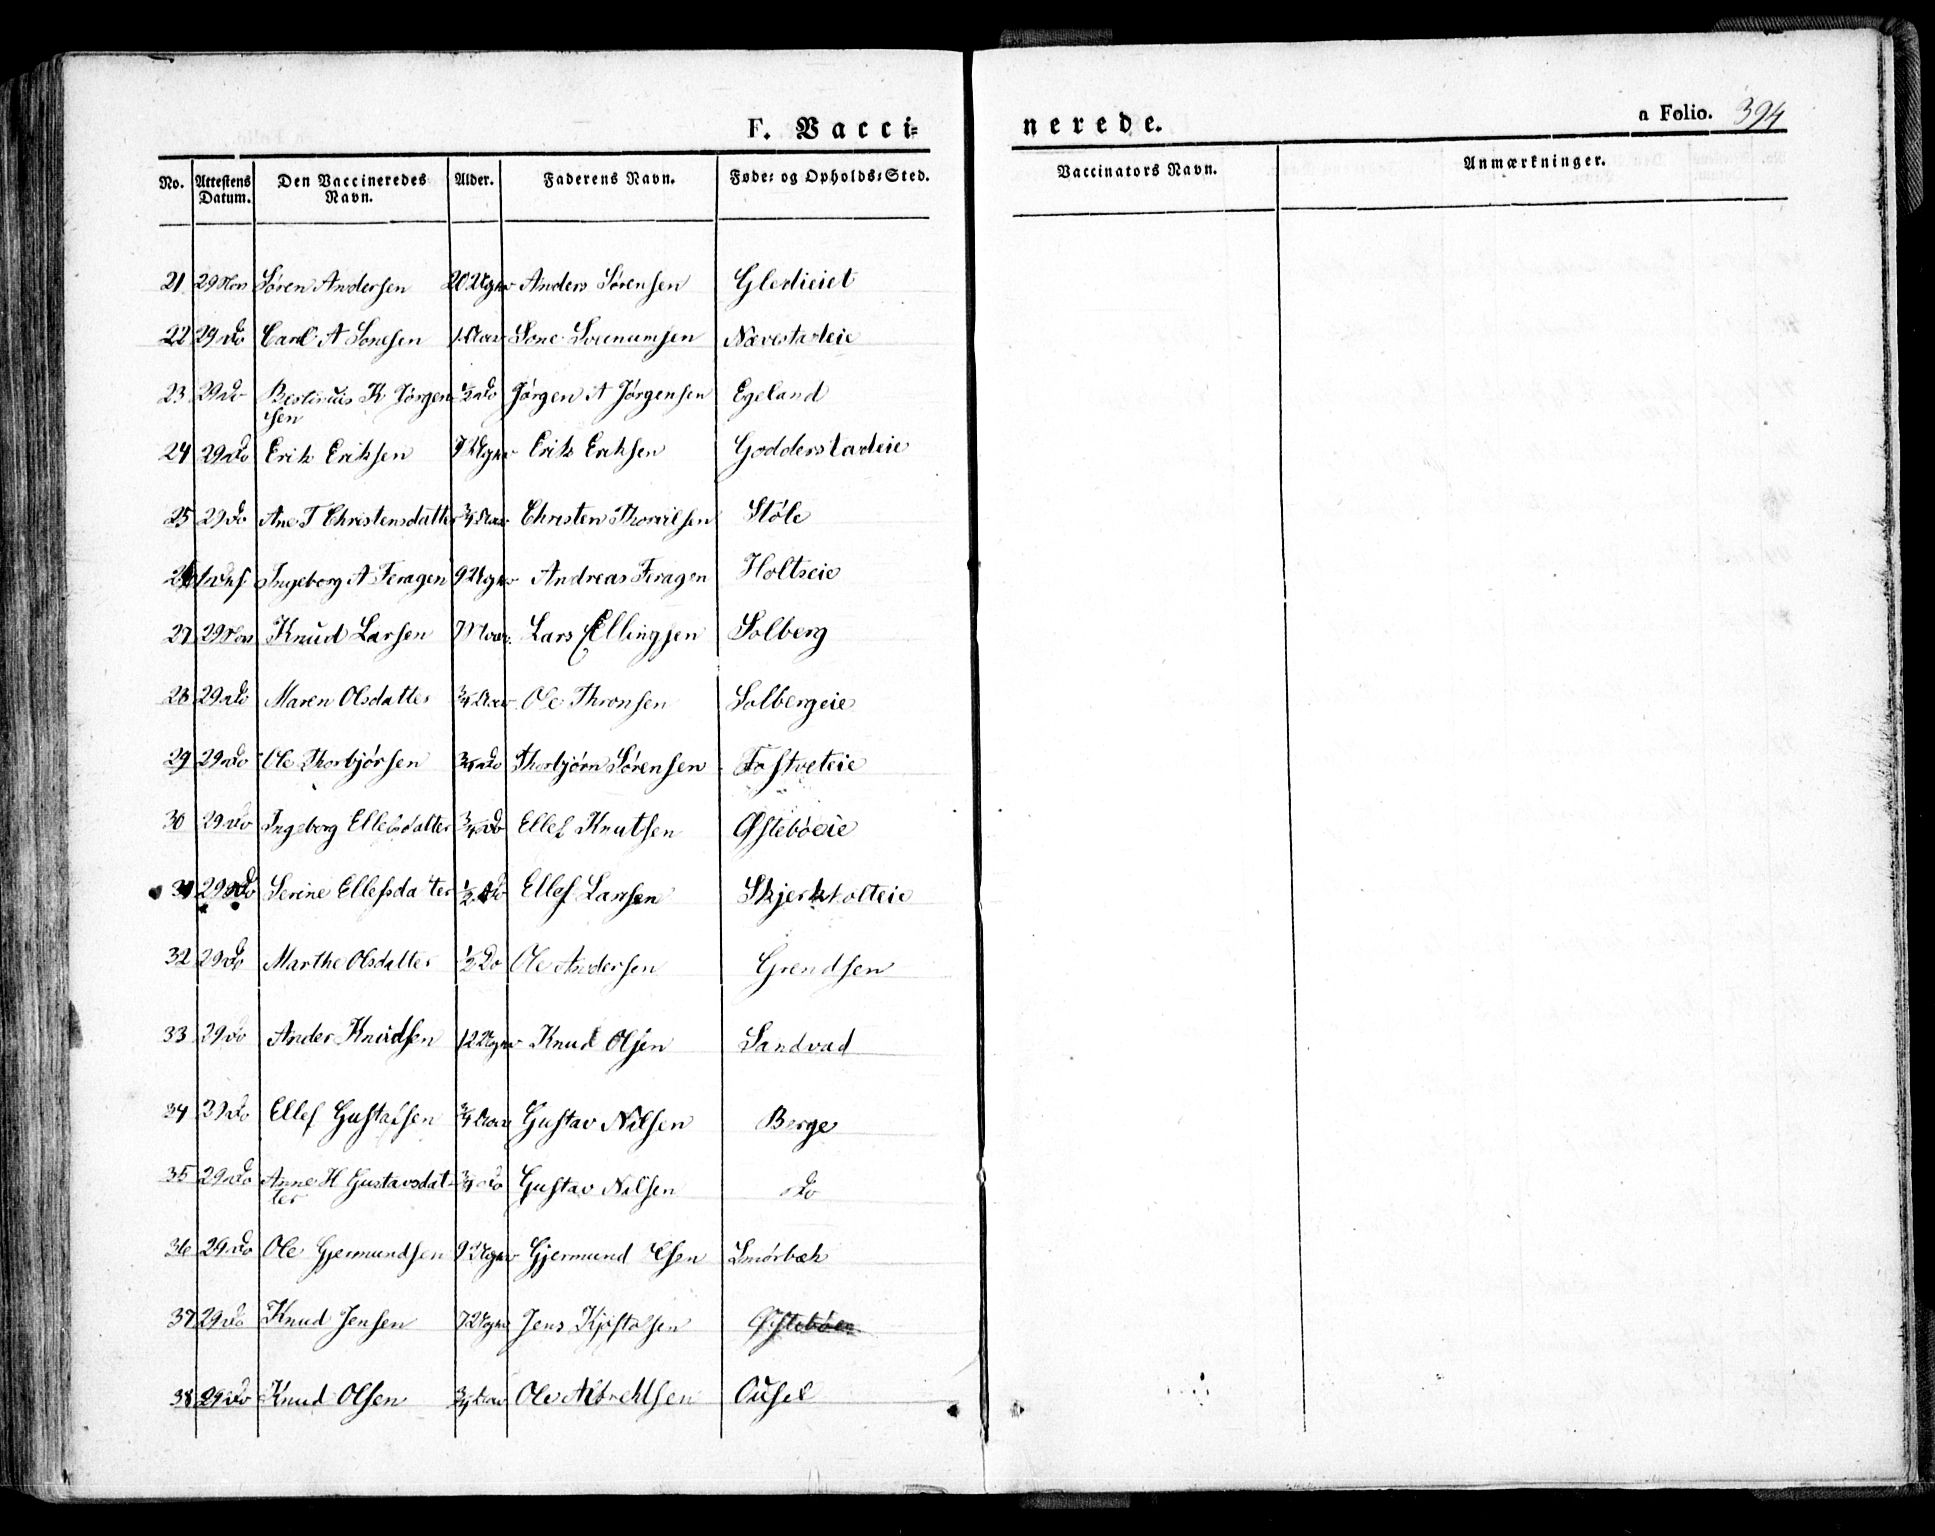 F. Vacci=
nerede.
a Folio. 394
No. Attestens Datum. Den Vaccineredes Navn. Alder. Faderens Navn. Føde= og Opholds=Sted. Vaccinators Navn. Anmærkninger.
21 29 Nov Søren Andersen 20 Uger Anders Sørensen Gledieiet
22 29 Do Carl A Sonesen 1 Aar Sone Næverstadeie
23 29 Do K Jørgen- ½ Do Jørgen A Jørgensen Egeland
sen
24 29 Do Erik Eriksen 9 Uger Erik Eriksen Godderstadeie
25 29 Do Ane T Christensdatter ¾ Aar Christen Støle
26 Ingeborg A Feragen 9 Uger Andreas Feragen Holtseie
27 29 Nov Knud Larsen 7 Lars Ellingsen Solberg
28 29 Do Maren Olsdatter ¾ Aar Ole Thronsen Solbergeie
29 29 Do Ole Thorbjørsen ¾ Do Thorbjørn Sørensen Tostveteie
30 29 Do Ingeborg Ellefsdatter ¾ Do Ellef Knutsen Østebøeie
31 29 Do Serine Ellefsdatter ½ Do Ellef Larssen Skjerkholteie
32 29 Do Marthe Olsdatter ½ Do Ole Andersen Grendsen
33 29 Do Ander Knudsen 12 Uger Knud Olsen Sandvad
34 29 Do Ellef Gustavsen ¾ Aar Gustav Nilsen Berge
35 29 Do Anne H Gustavsdat- ¾ Do Gustav Nilsen Do
ter
36 29 Do Ole Gjermundsen 9 Uger Gjermund Smørbæk
37 29 Do Knud Jensen 7 Uger Jens Østebøen
38 29 Do Knud Olsen ¾ Aar Ole Albrektsen Ousel